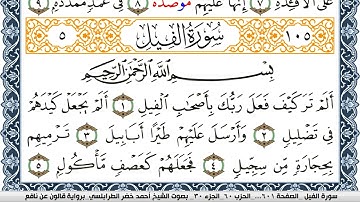 عَلَى اَ۬لْأَفْـِٔدَةِ ٧ إِنَّهَا عَلَيْهِم مُّوصَدَةٞ ٨ فِے عَمَدٖ مُّمَدَّدَةِۢ ٩
٥ سُورَةُ الْفِيلِ ١٠٥
بِسْمِ اللَّهِ الرَّحْمَٰنِ الرَّحِيمِ
أَلَمْ تَرَ كَيْفَ فَعَلَ رَبُّكَ بِأَصْحَٰبِ اِ۬لْفِيلِ ١ أَلَمْ يَجْعَلْ كَيْدَهُمْ
فِے تَضْلِيلٖ ٢ وَأَرْسَلَ عَلَيْهِمْ طَيْراً أَبَابِيلَ ٣ تَرْمِيهِم
بِحِجَارَةٖ مِّن سِجِّيلٖ ٤ فَجَعَلَهُمْ كَعَصْفٖ مَّأْكُولِۢ ٥
سورة الفيل الصفحة ٦٠١ـ... الحزب ٦٠ الجزء ٣٠ بصوت الشيخ أحمد خضر الطرابلسي برواية قالون عن نافع